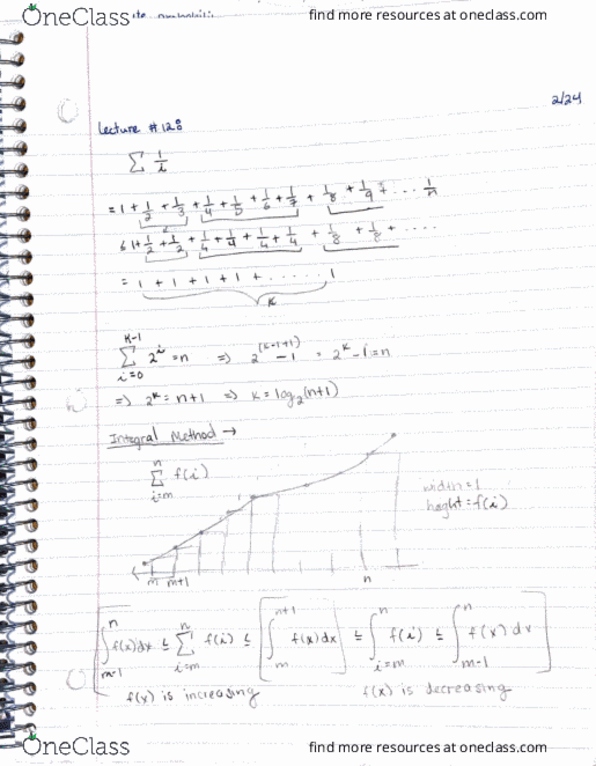 OneClass find more resources at oneclass.com
2/24
Lecture #12:
∑ 1/i
= 1 + 1/2 + 1/3 + 1/4 + 1/5 + 1/6 + 1/7 + 1/8 + 1/9 + ... 1/n
≤ 1 + 1/2 + 1/2 + 1/4 + 1/4 + 1/4 + 1/4 + 1/8 + 1/8 + ...
= 1 + 1 + 1 + 1 + ...... 1
K
∑_{i=0}^{K-1} 2^i = n ⇒ 2^{(K-1+1)} - 1 = 2^K - 1 = n
⇒ 2^K = n+1 ⇒ K = log₂(n+1)
Integral Method →
∑_{i=m}^{n} f(i)
width = 1
height = f(i)
m m+1 n
[∫_{m-1}^{n} f(x)dx ≤ ∑_{i=m}^{n} f(i) ≤ [∫_{m}^{n+1} f(x)dx] ≤ ∫_{i=m}^{n} f(i) ≤ ∫_{m-1}^{n} f(x) dx]
f(x) is increasing f(x) is decreasing
OneClass find more resources at oneclass.com